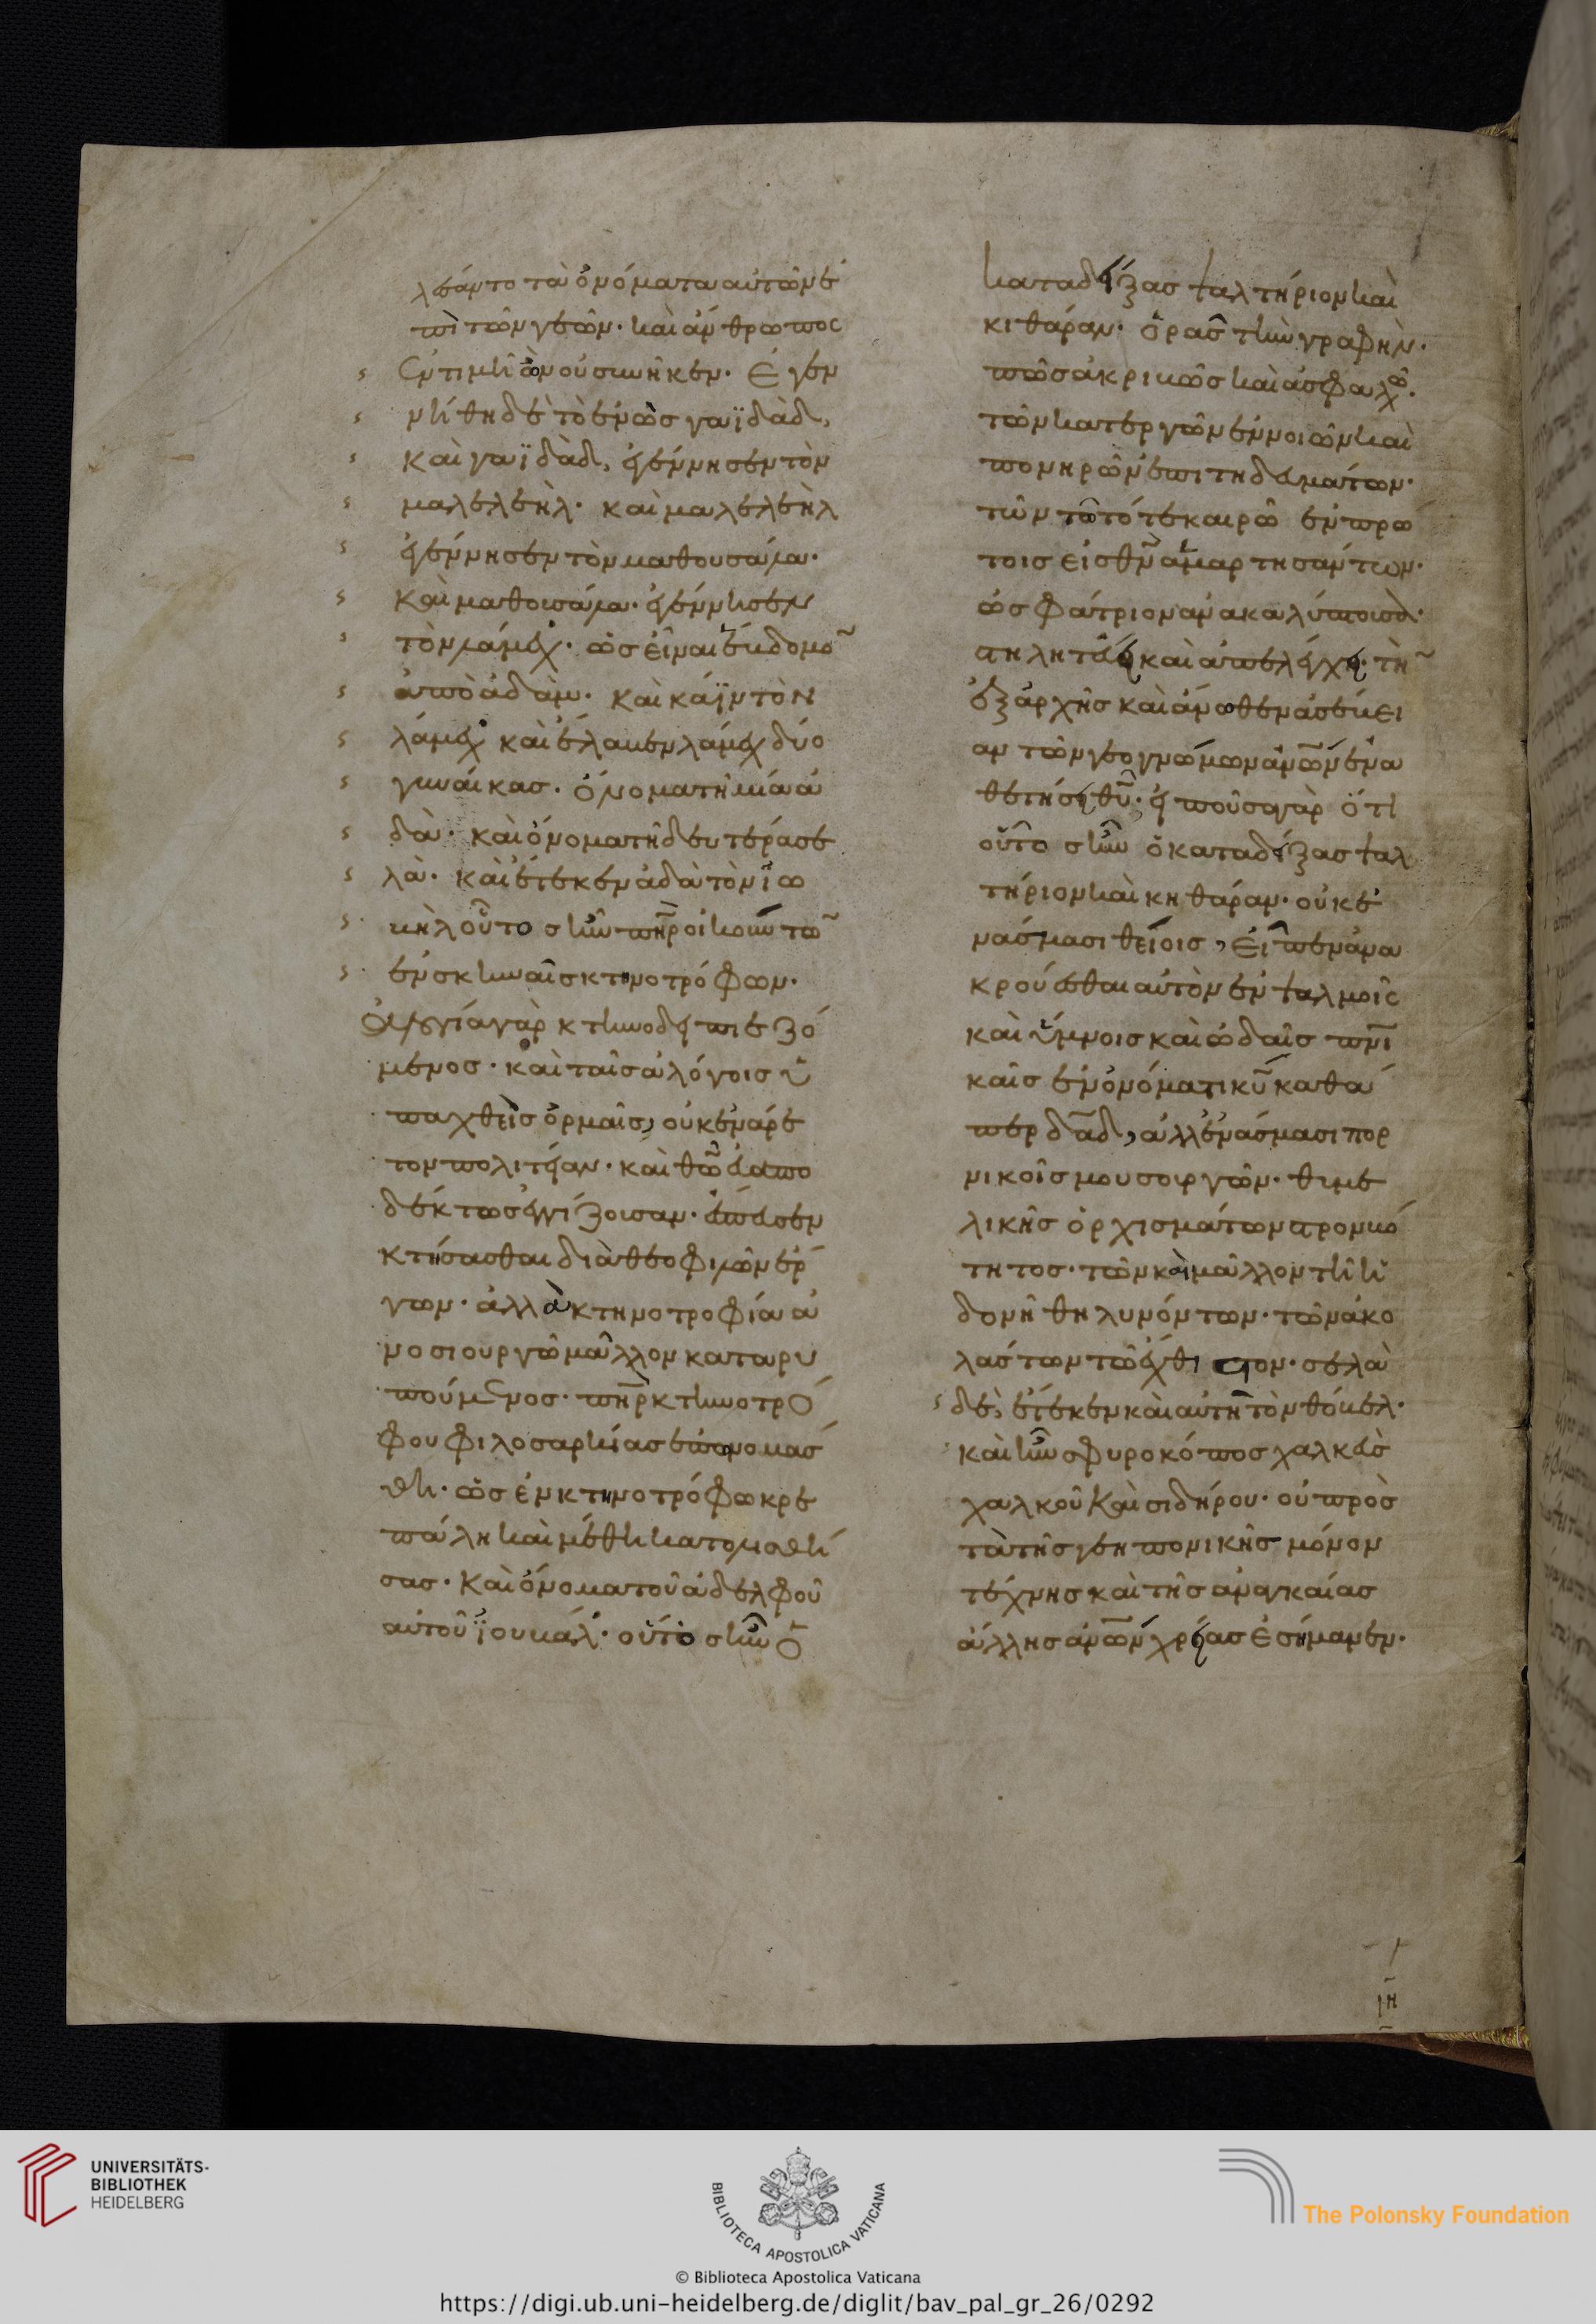 λεσάντο τὰ ὀνόματα αὐτῶν ἐ
πὶ τῶν γεῶν· καὶ ἄνθρωπος
ἐν τιμῆ ὢν οὐ συνῆκεν· Ἐγεν
νήθη δὲ τὸ ἐνὼς γαϊδὰδ,
καὶ γαϊδὰδ, ἐγέννησεν τὸν
μαλελεὴλ· καὶ μαλελεὴλ
ἐγέννησεν τὸν μαθουσάλα·
καὶ μαθουσάλα· ἐγέννησεν
τὸν λάμεχ· ὡς εἶναι ἕβδομο̅
ἀπὸ ἀδὰμ· καὶ κάϊν τὸν
λάμεχ καὶ ἔλαβεν λάμεχ δύο
γυναίκας· ὄνομα τῆ μιᾶ ἀ
δὰ· καὶ ὄνομα τῆ δευτέρα σε
λὰ· καὶ ἔτεκεν ἀδὰ τὸν ϊω
βὴλ οὗτος ἦν πη̅ρ οἰκούντω̅
ἐν σκηναῖς κτηνοτρόφων·
μενος· καὶ ταῖς ἀλόγοις ὑ
παχθεὶς ὁρμαῖς, οὐκ ἐνάρε
τον πολιτείαν· καὶ θω̅
κτήσασθαι διὰ θεοφιλῶν ἔρ
γων· ἀλλὰ κτηνοτροφία ἀ
νοσιουργῶ μᾶλλον καταρυ
πούμενος· πη̅ρ κτηνοτρό
φου φιλοσαρκίας
θη· ὡς ἐν κτηνοτρόφω κρε
πάλη καὶ μέθη
σας· Καὶ ὄνομα τοῦ ἀδελφοῦ
αὐτοῦ ϊουβάλ· οὗτος ἦν ὁ
καταδείξας ψαλτήριον καὶ
κιθάραν· ὁρᾶς τὴν γραφὴν·
πῶς ἀκριβῶς καὶ ἀσφαλῶ·
τῶν κατεργῶν ἐννοιῶν καὶ
πονηρῶν ἐπιτηδευμάτων·
τῶν τῶ τότε καιρῶ ἐν πρώ
τοις εἰς θν̅ ἁμαρτησάντων·
καὶ ἀπελέγχει· τὴ̅
ἐξ ἀρχῆς καὶ ἄνωθεν ἀσέβει
αν τῶν
θετήσει θυ̅· εἰποῦσα γὰρ ὅτι
οὗτος ἦν ὁ καταδείξας ψαλ
τήριον καὶ κηθάραν· οὐκ ἐ
νάσμασι θείοις, εἶπεν ἀνα
κρούεσθαι αὐτὸν ἐν ψαλμοῖς
καὶ ὕμνοις καὶ ὠδαῖς πνι̅
καῖς ἐν ὀνόματι κυ̅ καθά
περ δα̅δ, ἀλλ' ἐν ἄσμασι πορ
νικοῖς μουσουργῶν· θυμε
λικῆς ὀρχισμάτων
τητος· τῶν καὶ μᾶλλον τῆ ἡ
δονῆ θηλυνόντων· τῶν ἀκο
λάστων τῶ σελὰ
δὲ, ἔτεκεν καὶ αὐτὴ τὸν θόβελ·
καὶ ἦν σφυροκόπος χαλκεὺς
χαλκοῦ καὶ σιδήρου· οὐ πρὸς
τὰ τῆς γεηπονικῆς μόνον
τέχνης καὶ τῆς ἀναγκαίας
ἄλλης ἀνω̅ν χρείας ἐσήμανεν·
ιη
UNIVERSITÄTS-
BIBLIOTHEK
HEIDELBERG
BIBLIOTECA APOSTOLICA VATICANA
The Polonsky Foundation
© Biblioteca Apostolica Vaticana
https://digi.ub.uni-heidelberg.de/diglit/bav_pal_gr_26/0292